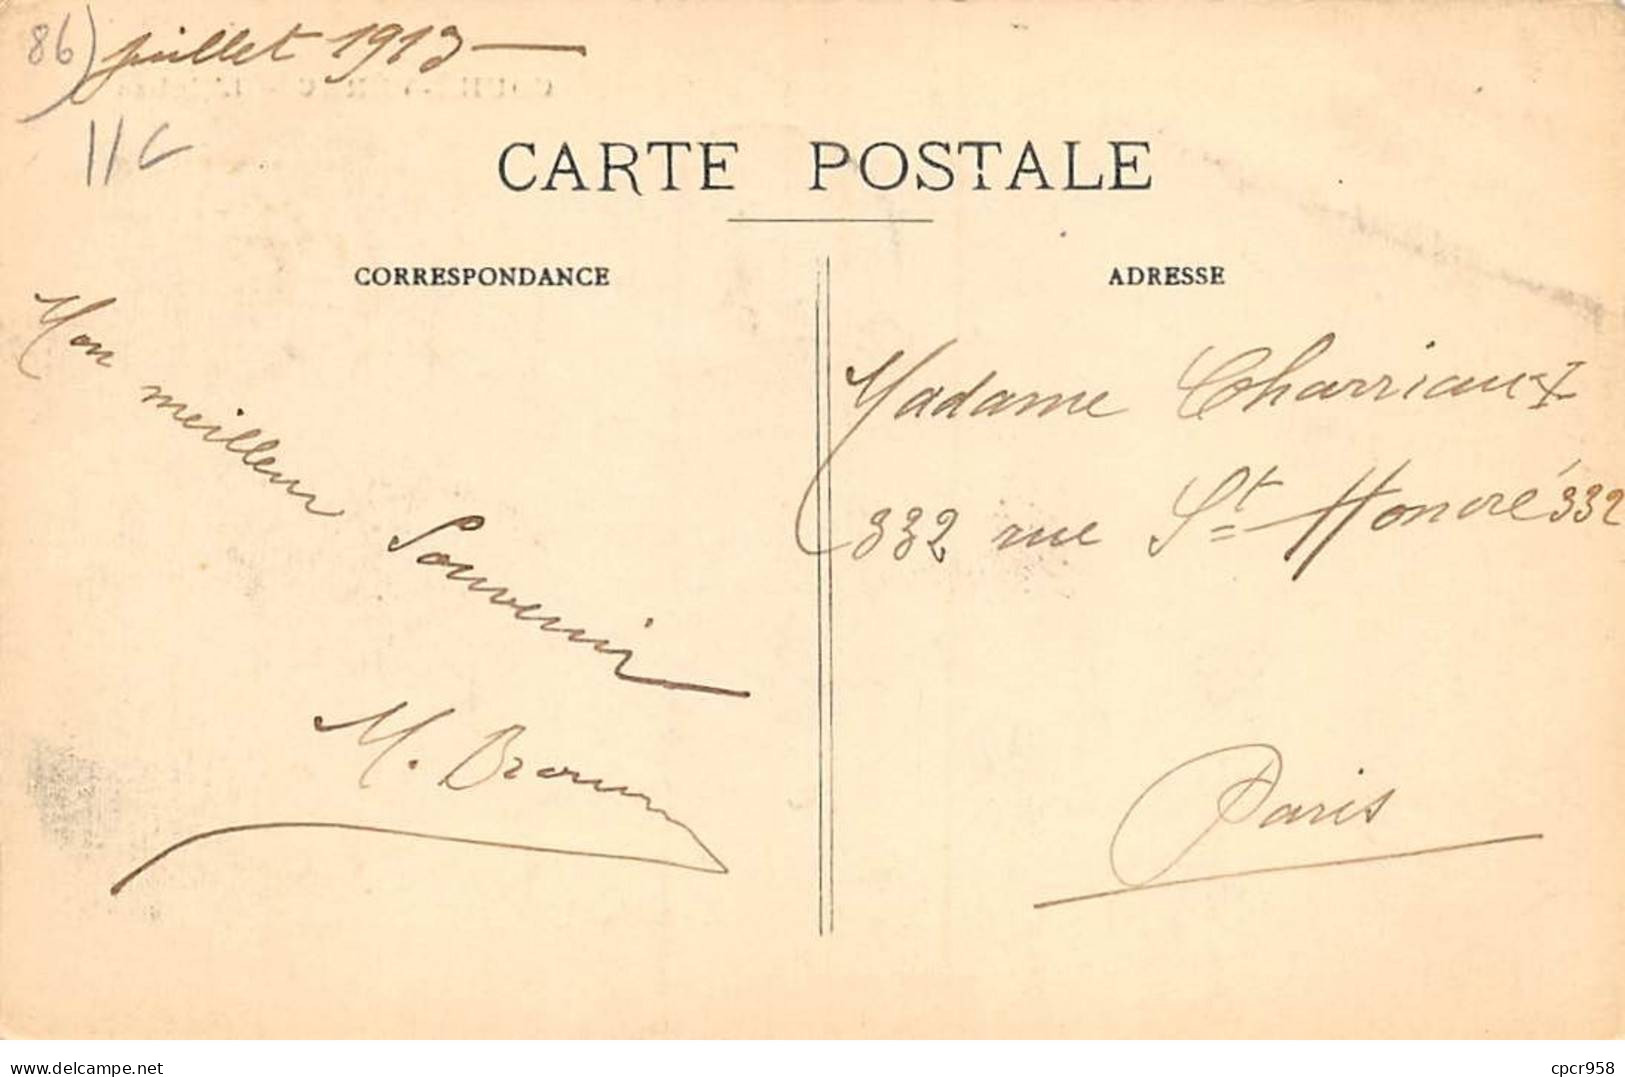 86
juillet 1913
11C
CARTE POSTALE
CORRESPONDANCE
Mon meilleur Souvenir
M. Broun
ADRESSE
Madame Charriaux
332 rue St Honoré 332
Paris
Delcampe.net
cpcr958